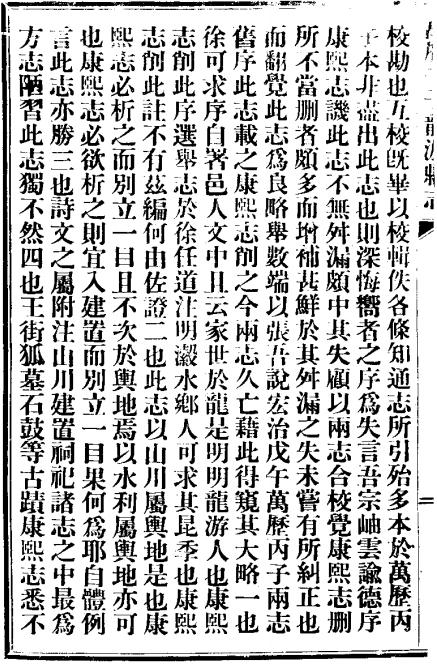 校勘也互校既畢以校輯佚各條知通志所引殆多本於萬歷丙
子本非盡出此志也則深悔嚮者之序爲失言吾宗岫雲諭德序
康熙志譏此志不無舛漏頗中其失顧以兩志合校覺康熙志删
所不當删者頗多而增補甚鮮於其舛漏之失未嘗有所糾正也
而翻覺此志爲良略舉數端以張吾說宏治戊午萬歷丙子兩志
舊序此志載之康熙志削之今兩志久亡藉此得窺其大略一也
徐可求序自署邑人文中且云家世於龍是明明龍游人也康熙
志削此序選舉志於徐任道注明瀫水鄉人可求其昆季也康熙
志削此註不有茲編何由佐證二也此志以山川屬輿地是也康
熙志必析之而別立一目且不次於輿地焉以水利屬輿地亦可
也康熙志必欲析之則宜入建置而別立一目果何爲耶自體例
言此志亦勝三也詩文之屬附注山川建置祠祀諸志之中最爲
方志陋習此志獨不然四也王街狐墓石鼓等古蹟康熙志悉不